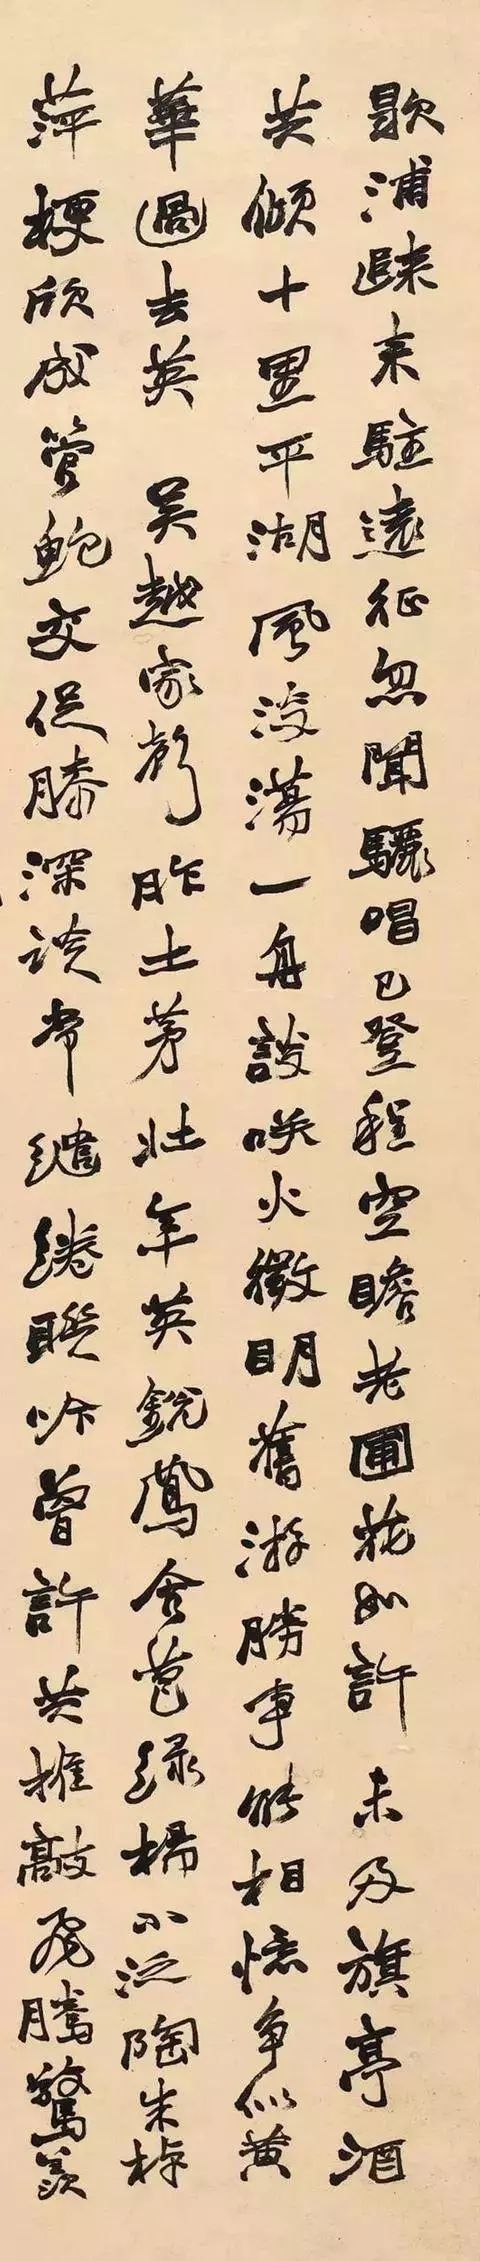 歇浦歸來駐遠征忽聞驪唱已登程空瞻老圃花如許未及旗亭酒
共傾十里平湖風淡蕩一舟談笑火微明舊游勝事能相憶爭似黃
華過去英吳越家聲胙土茅壯年英銳鳳含苞綠楊小泛陶朱棹
萍梗欣成管鮑交促膝深談常繾綣聯吟曾許共推敲飛騰驚羨